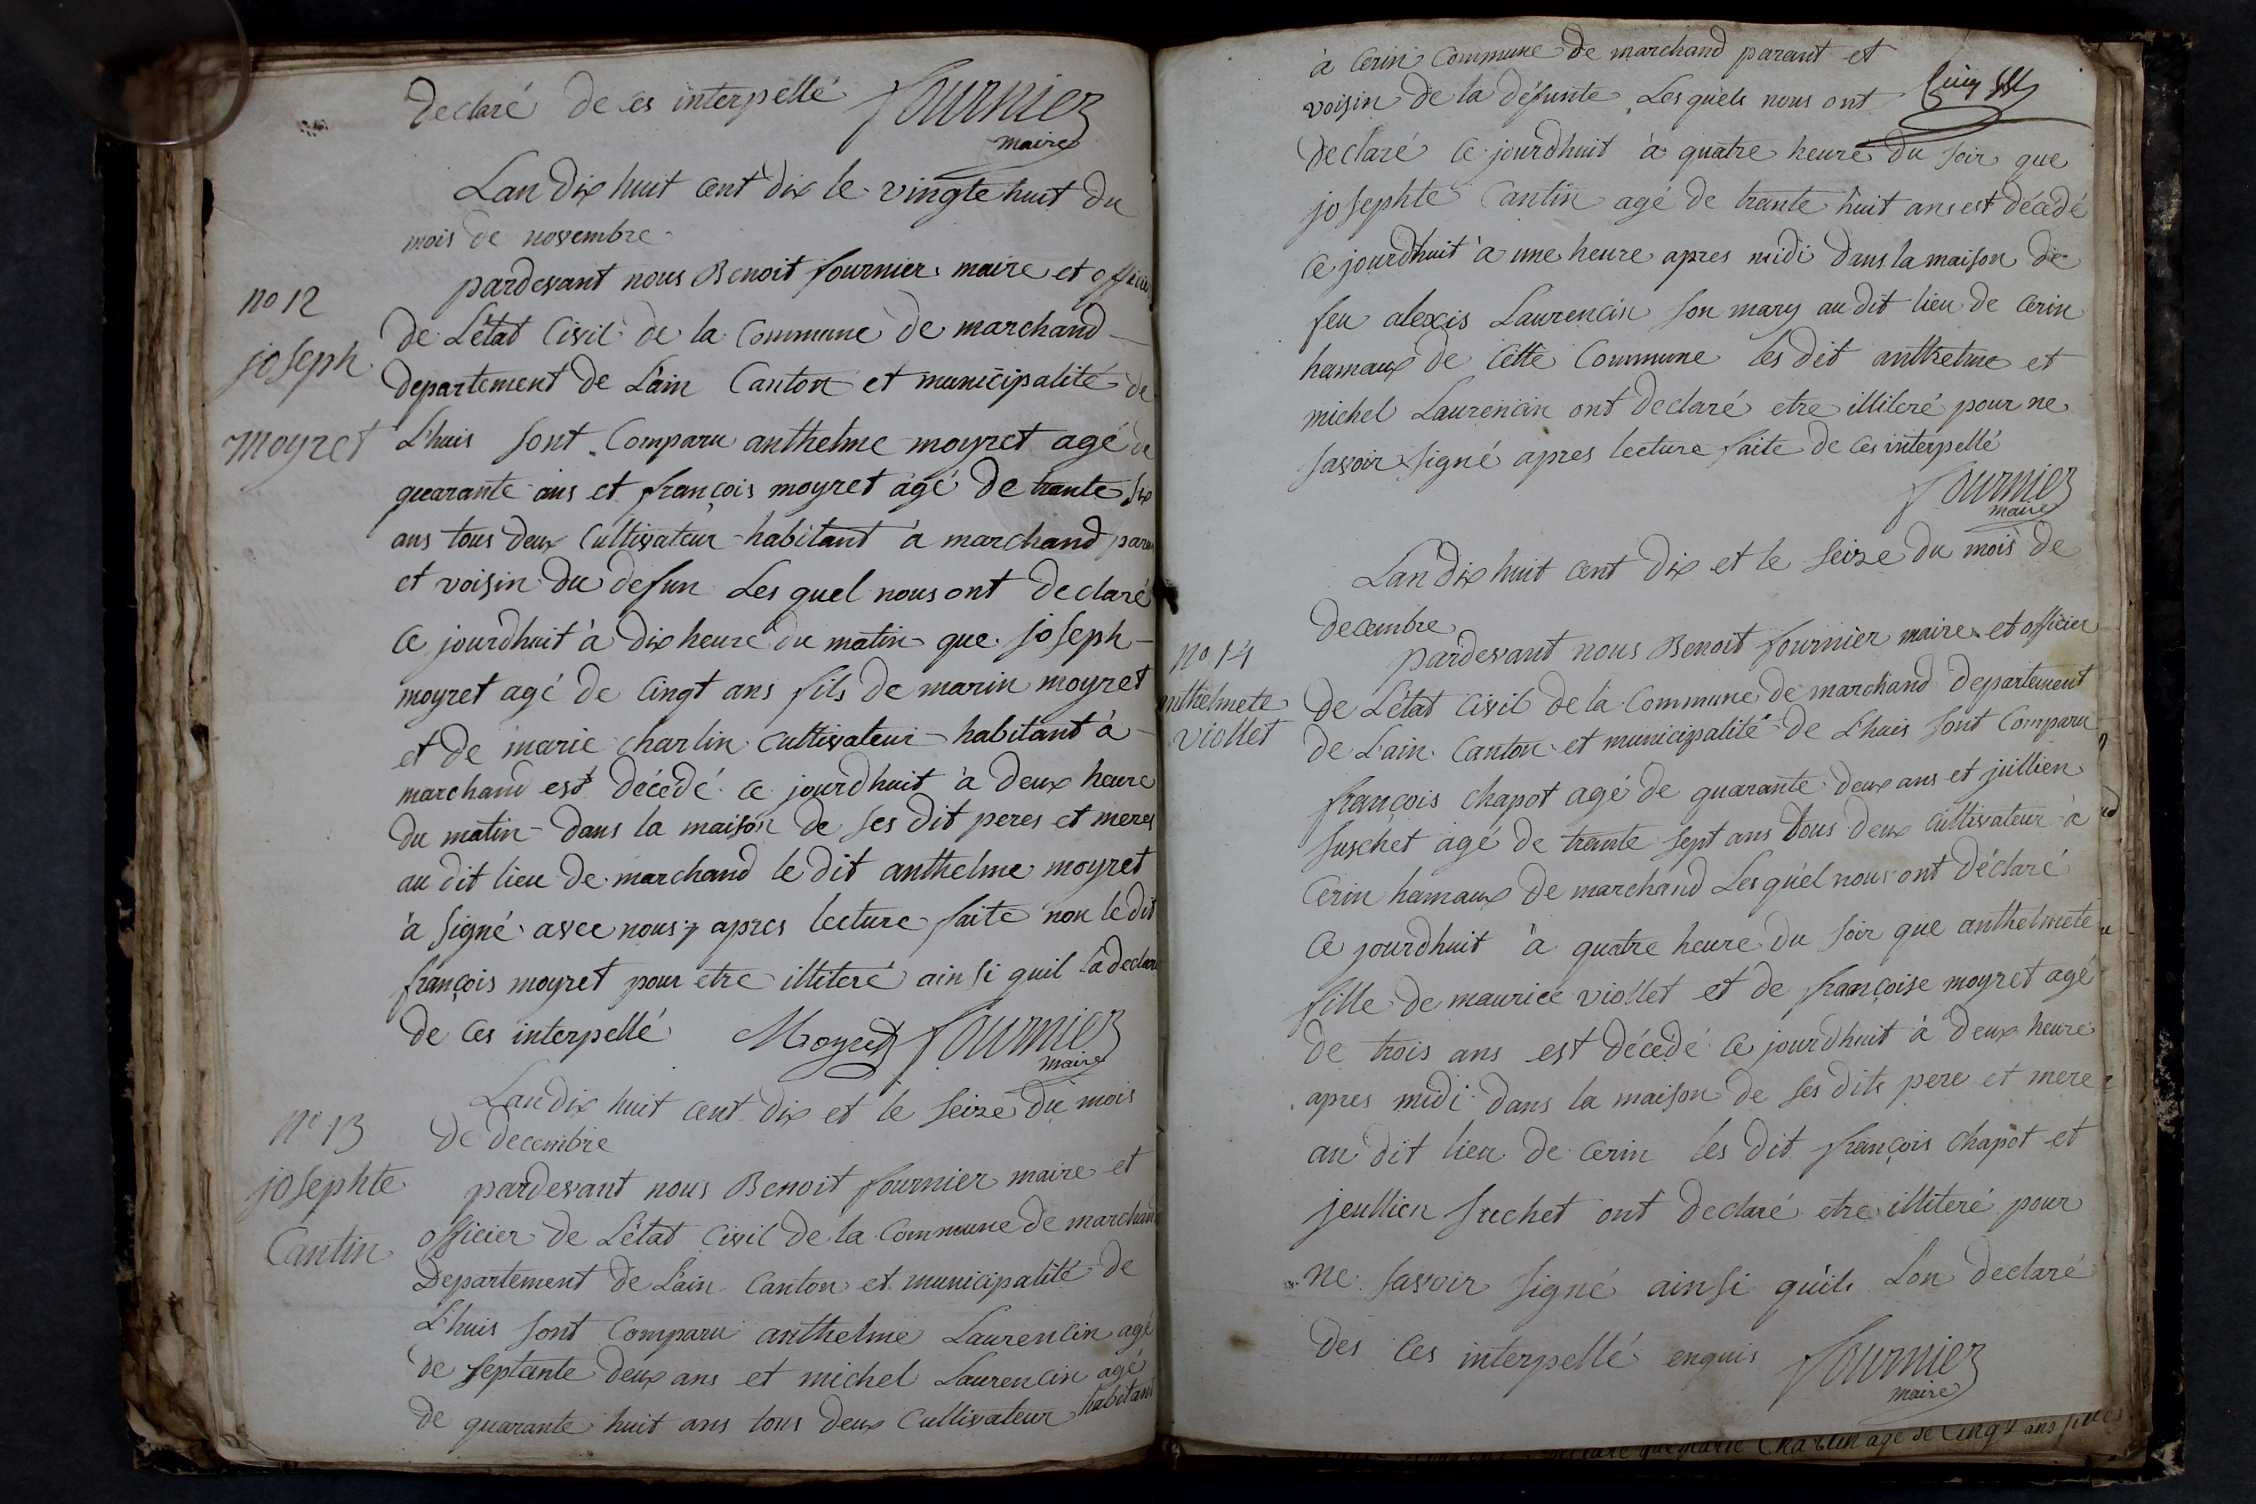 declaré de ces interpellé fournier
maire
Lan dix huit cent dix le vingte huit du
mois de novembre
no 12
joseph
moyret
pardevant nous Benoit fournier maire et officier
de L'état Civil de la Commune de marchand
departement de L'ain Canton et municipalité de
L'huis sont Comparu anthelme moyret agé de
quarante ans et françois moyret agé de trante six
ans tous deux Cultivateur habitant à marchand paran
et voisin du defun Les quel nous ont declaré
ce jourdhuit à dix heure du matin que joseph
moyret agé de Cingt ans fils de marin moyret
et de marie charlin cultivateur habitant à
marchand est décédé ce jourdhuit à deux heure
du matin dans la maison de ses dit peres et meres
au dit lieu de marchand le dit anthelme moyret
à signé avec nous apres lecture faite non le dit
françois moyret pour etre illiteré ainsi quil la declaré
de ces interpellé Moyret fournier
maire
Lan dix huit cent dix et le seize du mois
de decembre
no 13
josephte
Cantin
pardevant nous Benoit fournier maire et
officier de L'état Civil de la Commune de marchand
Departement de L'ain Canton et municipalité de
L'huis sont Comparu anthelme Laurencin agé
de septante deux ans et michel Laurencin agé
de quarante huit ans tous deux Cultivateur habitant
à Cerin Commune de marchand parant et
voisin de la défunte Les quels nous ont
declaré ce jourdhuit à quatre heure du soir que
josephte Cantin agé de trante huit ans est décédé
ce jourdhuit à une heure apres midi dans la maison de
feu alexis Laurencin son mary au dit lieu de Cerin
hamaux de Cette Commune les dit anthelme et
michel Laurencin ont declaré etre illiteré pour ne
savoir signé apres lecture faite de ces interpellé
fournier
maire
Lan dix huit cent dix et le seize du mois de
decembre
no 14
anthelmete
viollet
pardevant nous Benoit fournier maire et officier
de L'état Civil de la Commune de marchand departement
de L'ain Canton et municipalité de L'huis sont Comparu
françois chapot agé de quarante deux ans et jullien
suschet agé de trante sept ans tous deux Cultivateur à
Cerin hamaux de marchand Les quel nous ont déclaré
ce jourdhuit à quatre heure du soir que anthelmete
fille de maurice viollet et de françoise moyret agé
de trois ans est décédé ce jourdhuit à deux heure
apres midi dans la maison de ses dits pere et mere
au dit lieu de Cerin les dit françois chapot et
jeullien suchet ont declaré etre illiteré pour
ne savoir signé ainsi quils lon declaré
des ces interpellé enquis fournier
maire
declaré que marie Charlin agé de Cingt ans